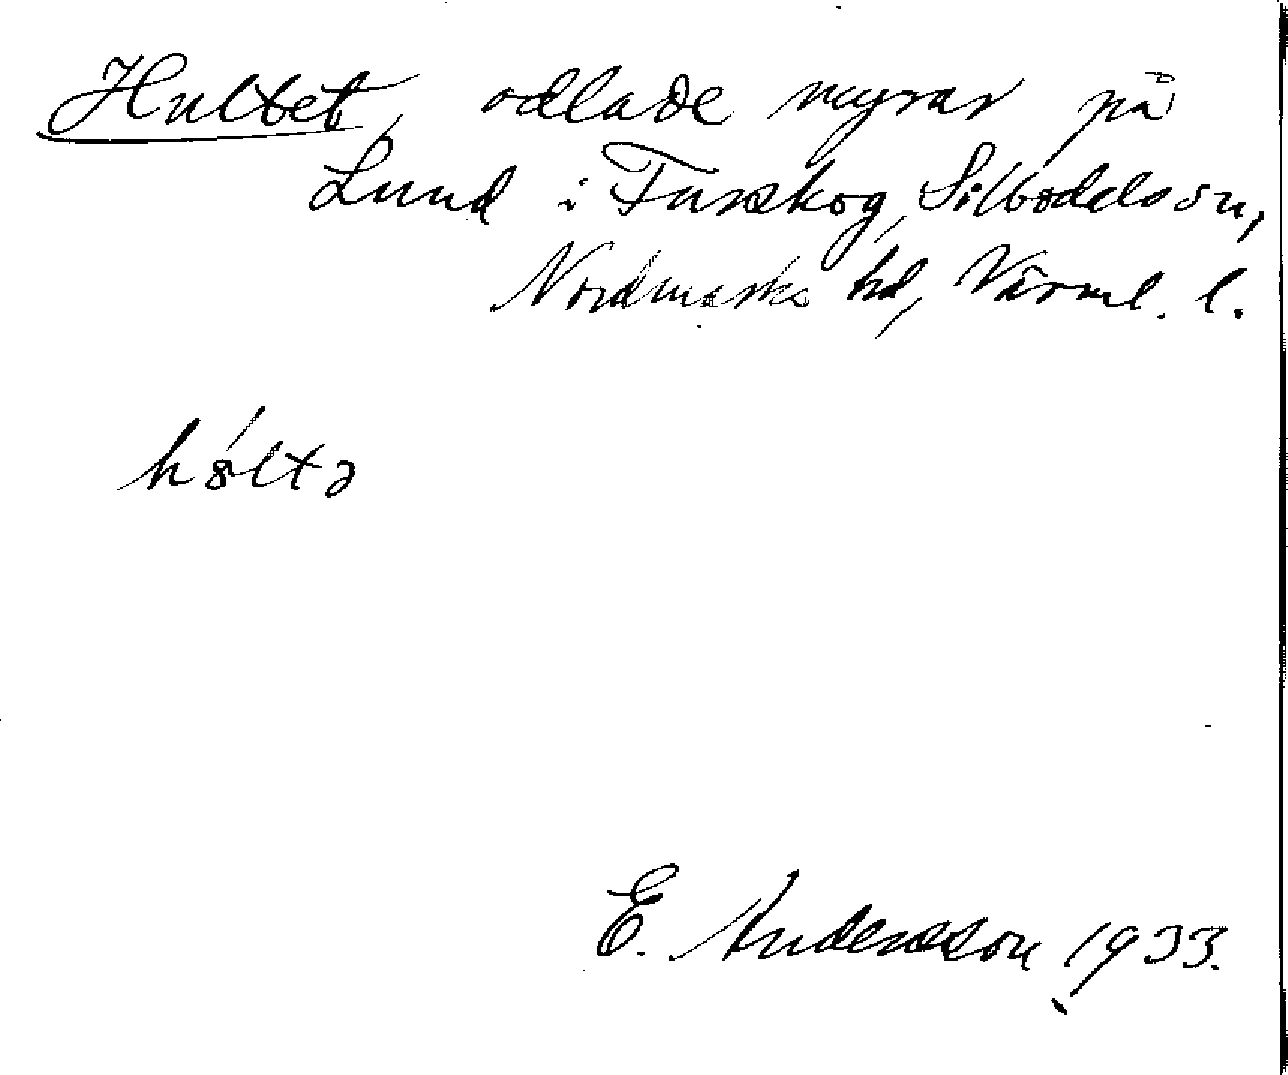 Hultet, odlade myrar på
Lund i Furskog, Silbodals sn,
Nordmarks hd, Värml. l.
hóltə
E. Andersson 1933.